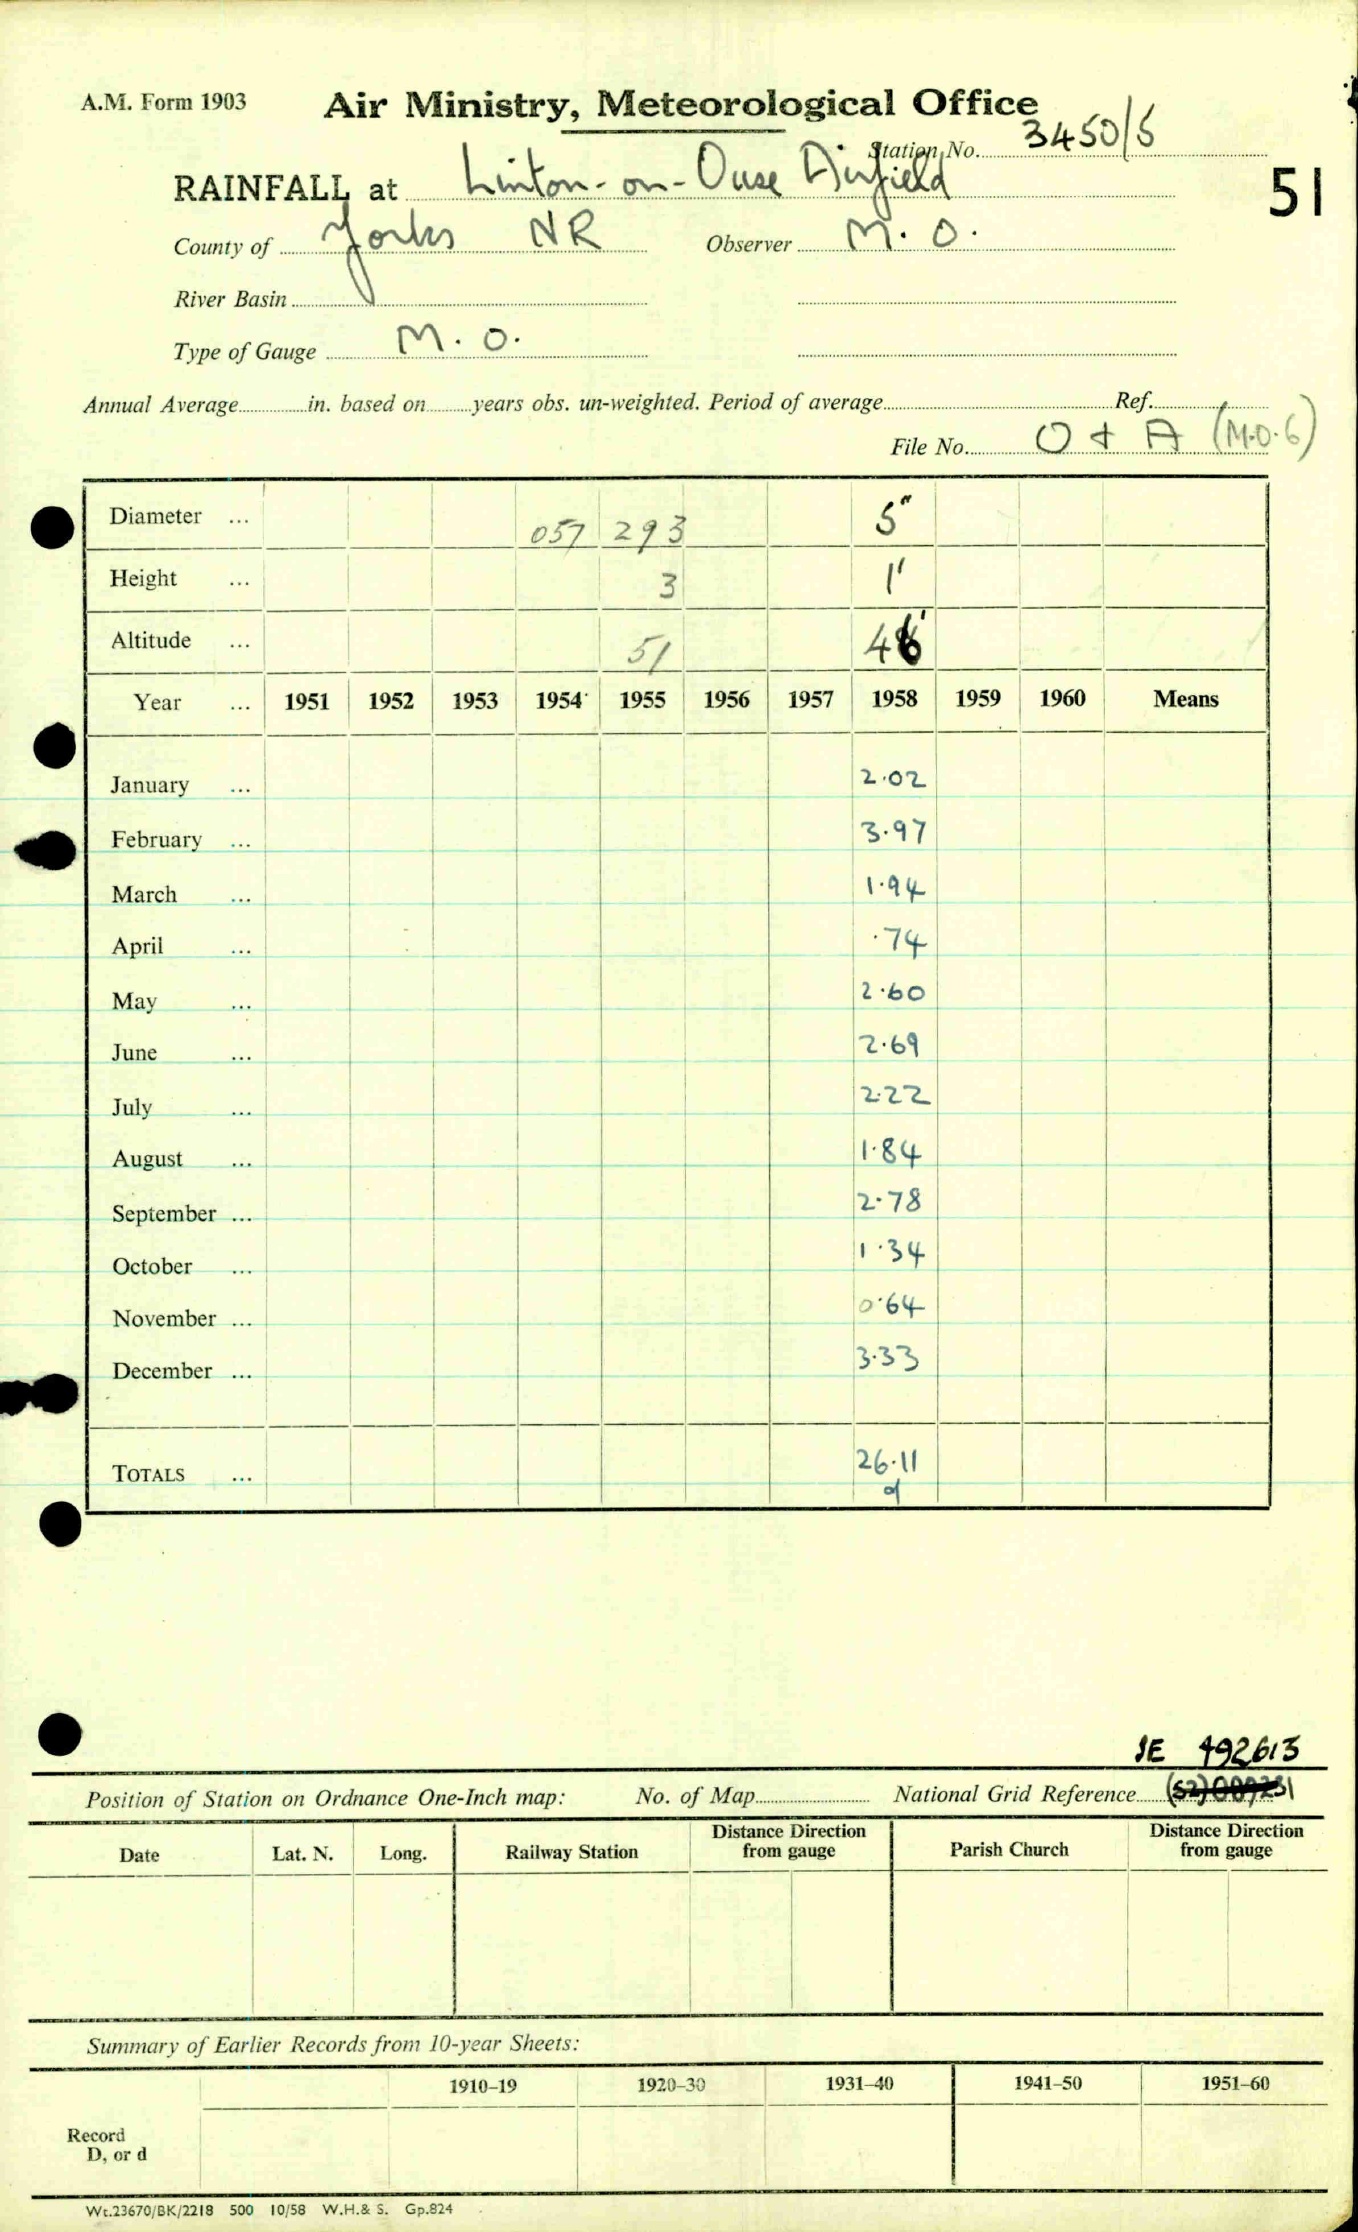 A.M. Form 1903 Air Ministry, Meteorological Office
Station No. 3450/5
RAINFALL at Linton-on-Ouse Airfield 51
County of Yorks NR Observer M. O.
River Basin
Type of Gauge M. O.
Annual Average in. based on years obs. un-weighted. Period of average Ref.
File No. O + A (M.O.6)
Diameter ... 057 293 5"
Height ... 3 1'
Altitude ... 51
Year ... 1951 1952 1953 1954 1955 1956 1957 1958 1959 1960 Means
January ... 2.02
February ... 3.97
March ... 1.94
April ... .74
May ... 2.60
June ... 2.69
July ... 2.22
August ... 1.84
September ... 2.78
October ... 1.34
November ... 0.64
December ... 3.33
TOTALS ... 26.11
d
SE 492613
Position of Station on Ordnance One-Inch map: No. of Map National Grid Reference
Date Lat. N. Long. Railway Station Distance Direction from gauge Parish Church Distance Direction from gauge
Summary of Earlier Records from 10-year Sheets:
1910–19 1920–30 1931–40 1941–50 1951–60
Record
D, or d
Wt.23670/BK/2218 500 10/58 W.H.& S. Gp.824